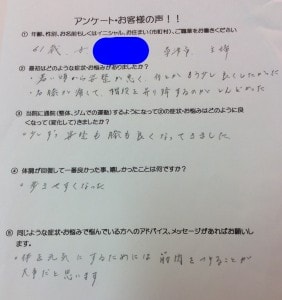 アンケート・お客様の声！！
① 年齢、性別、お名前もしくはイニシャル、お住まい（市町村）、ご職業をお書きください
61歳、女 主婦
② 最初はどのような症状・お悩みがありましたか？
・若い時から姿勢が悪く、何とかもう少し良くしたかった
・右膝が痛くて、階段を昇り降りするのがしんどかった
③ 当院に通院（整体、ジムでの運動）するようになって②の症状・お悩みはどのように良く
なって（変化して）きましたか？
・少しずつ姿勢も膝も良くなってきました
④ 体調が回復して一番良かった事、嬉しかったことは何ですか？
・歩きやすくなった
⑤ 同じような症状・お悩みで悩んでいる方へのアドバイス、メッセージがあればお願いし
ます。
・体を元気にするためには筋肉をつけることが
大事だと思います